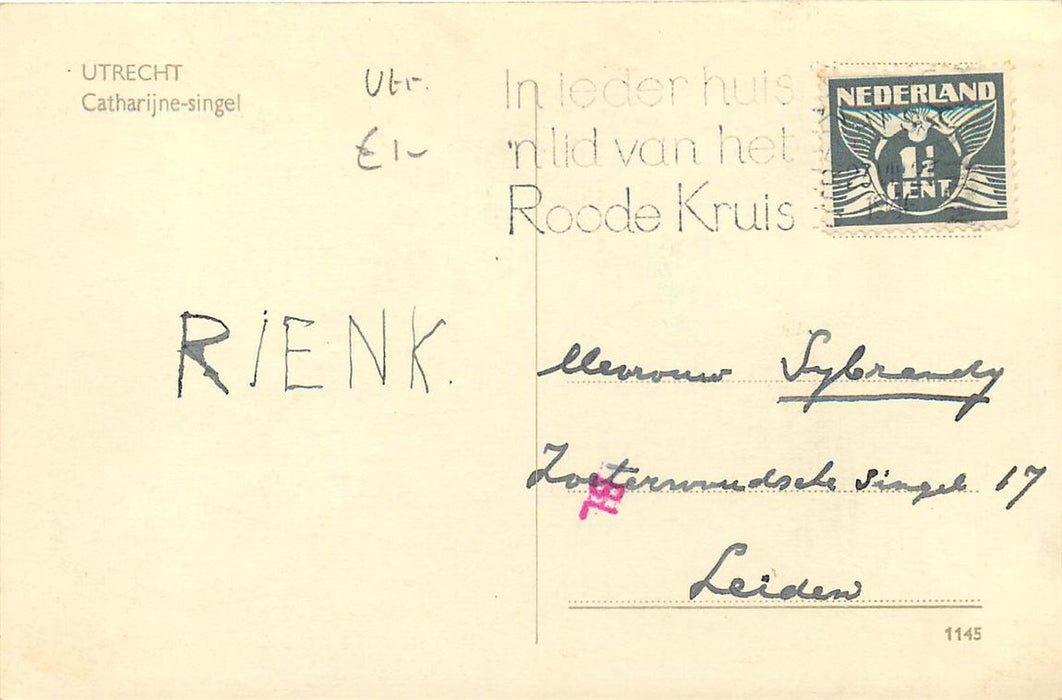 UTRECHT
Catharijne-singel
Utr.
€ 1-
In ieder huis
'n lid van het
Roode Kruis
NEDERLAND
1½
CENT
RIENK.
Mevrouw Sybrandy
Zoeterwoudsche Singel 17
Leiden
1145